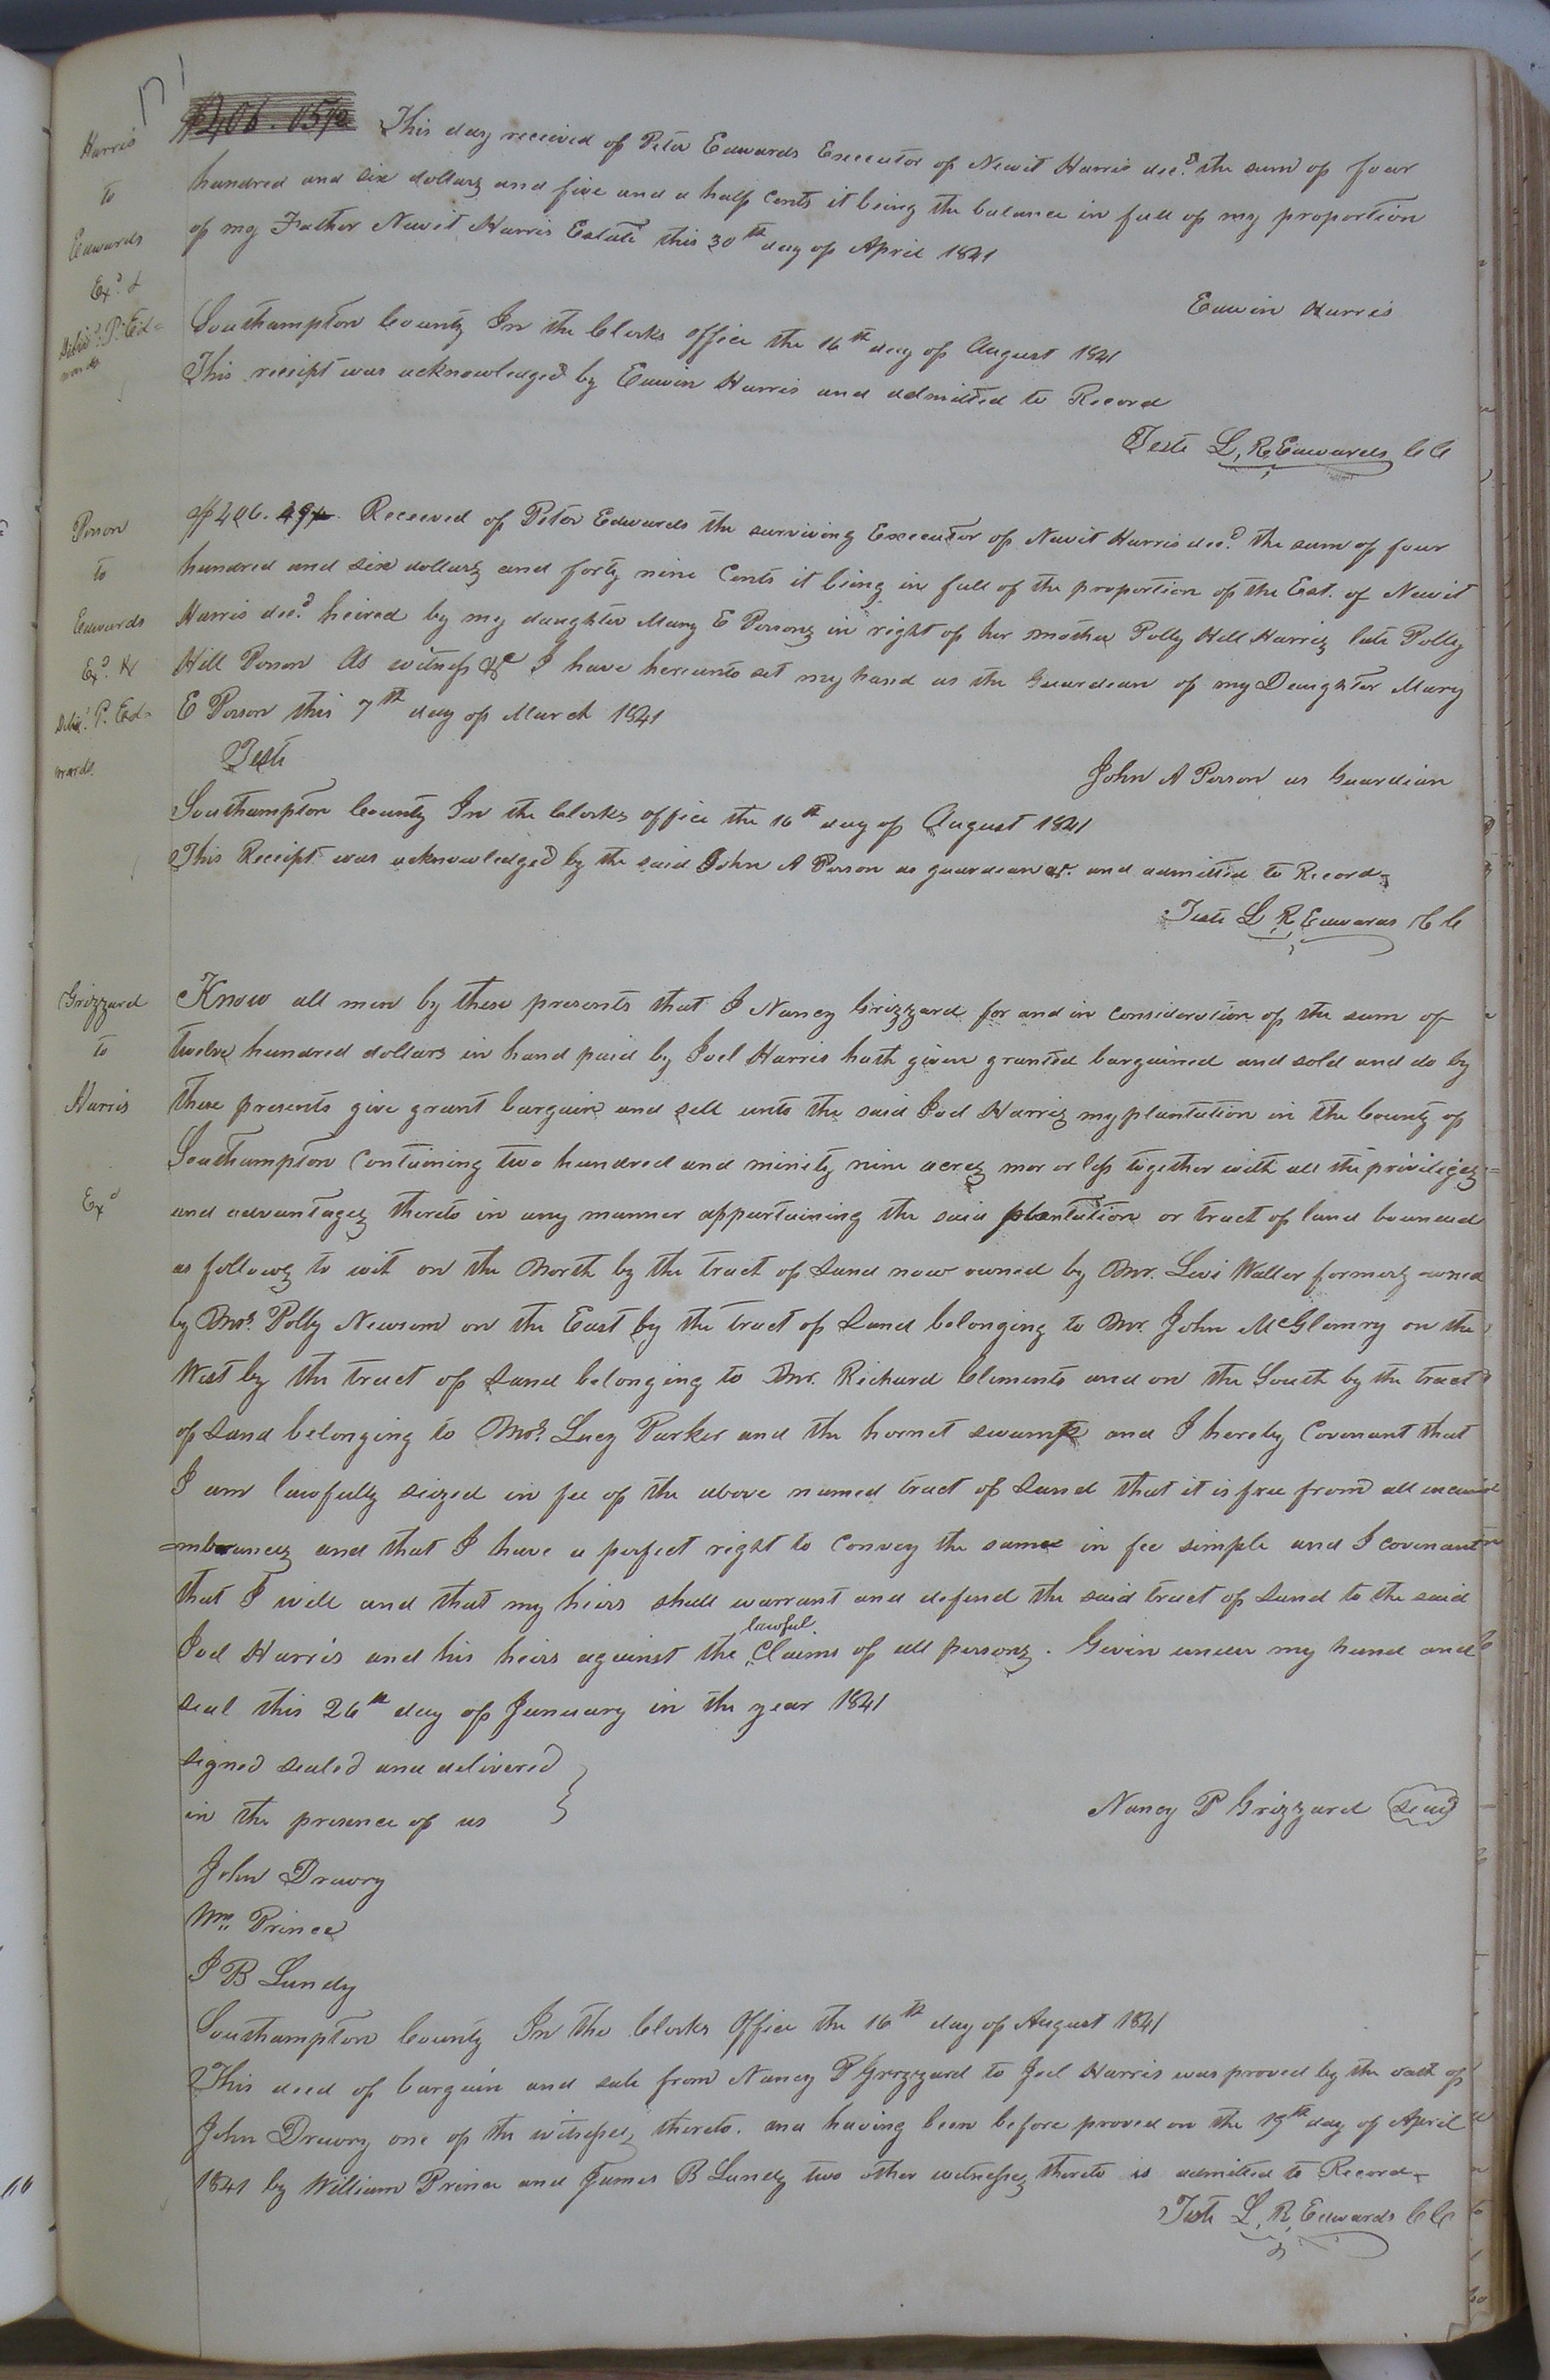 Harris
to
Edwards
Exd. &
Delivd. P. Ed=
wards
$406.05½ This day received of Peter Edwards Executor of Newit Harris decd. the sum of four
hundred and six dollars and five and a half Cents it being the balance in full of my proportion
of my Father Newit Harris Estate this 30th day of April 1841
Edwin Harris
Southampton County In the Clerks office the 16th day of August 1841
This receipt was acknowledged by Edwin Harris and admitted to Record
Teste L. R. Edwards CC
Person
to
Edwards
Exd. &
Delivd. P. Ed=
wards.
$406.49 Received of Peter Edwards the surviving Executor of Newit Harris decd. the sum of four
hundred and six dollars and forty nine Cents it being in full of the proportion of the Est. of Newit
Harris decd. heired by my daughter Mary E Persons in right of her mother Polly Hill Harris late Polly
Hill Person As witness &c I have hereunto set my hand as the Guardian of my Daughter Mary
E Person this 7th day of March 1841
Teste
John A Person as Guardian
Southampton County In the Clerks office the 16th day of August 1841
This Receipt was acknowledged by the said John A Person as guardian &c. and admitted to Record
Teste L R Edwards CC
Grizzard
to
Harris
Exd
Know all men by these presents that I Nancy Grizzard for and in consideration of the sum of
twelve hundred dollars in hand paid by Joel Harris hath given granted bargained and sold and do by
these presents give grant bargain and sell unto the said Joel Harris my plantation in the County of
Southampton Containing two hundred and ninity nine acres mor or less together with all the privileges
and advantages thereto in any manner appurtaining the said plantation or tract of land bounded
as follows to wit on the North by the tract of Land now owned by Mr. Levi Waller formerly owned
by Mrs. Polly Newsom on the East by the tract of Land belonging to Mr. John McGlemry on the
West by the tract of Land belonging to Mr. Richard Clements and on the South by the tract
of Land belonging to Mrs. Lucy Parker and the hornet swamp and I hereby Covenant that
I am lawfully seized in fee of the above named tract of Land that it is free from all
=mbrances and that I have a perfect right to Convey the same in fee simple and I covenant
that I will and that my heirs shall warrant and defend the said tract of Land to the said
Joel Harris and his heirs against the lawful Claims of all persons. Given under my hand and
seal this 26th day of January in the year 1841
Signed Sealed and delivered
in the presence of us
Nancy P Grizzard Seal
John Drewry
Wm. Prince
J B Lundy
Southampton County In the Clerks Office the 16th day of August 1841
This deed of bargain and sale from Nancy P Grizzard to Joel Harris was proved by the oath of
John Drewry one of the witnesses thereto. and having been before proved on the 19th day of April
1841 by William Prince and James B Lundy two other witnesses thereto is admitted to Record
Teste L. R. Edwards CC